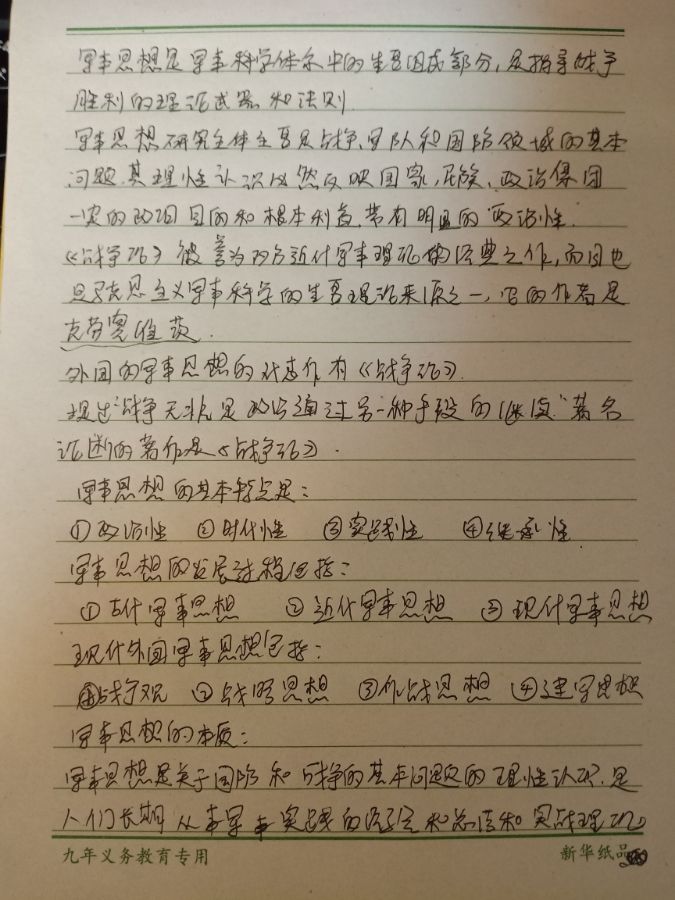 军事思想是军事科学体系中的重要组成部分,是指导战争
胜利的理论武器和法则.
军事思想研究主体主要是战争,军队和国防领域的基本
问题,其理性认识必然反映国家,民族、政治集团
一定的政治目的和根本利益,带有明显的“政治性.
《战争论》被誉为西方近代军事理论的经典之作,而且也
是马克思主义军事科学的重要理论来源之一,它的作者是
克劳塞维茨.
外国的军事思想的代表作有《战争论》.
提出“战争无非是政治通过另一种手段的继续”著名
论断的著作是《战争论》.
军事思想的基本特点是:
①政治性 ②时代性 ③实践性 ④继承性
军事思想的发展过程包括:
①古代军事思想 ②近代军事思想 ③现代军事思想
现代外国军事思想包括:
①战争观 ②战略思想 ③作战思想 ④建军思想
军事思想的本质:
军事思想是关于国防和战争的基本问题的理性认识.是
人们长期从事军事实践的经验和总结和实战理论
九年义务教育专用
新华纸品